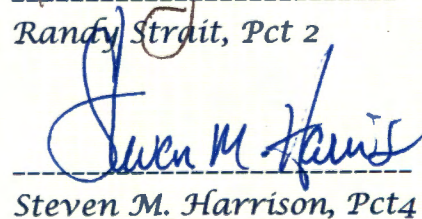 Randy Strait, Pct 2
Steven M. Harris
Steven M. Harrison, Pct4